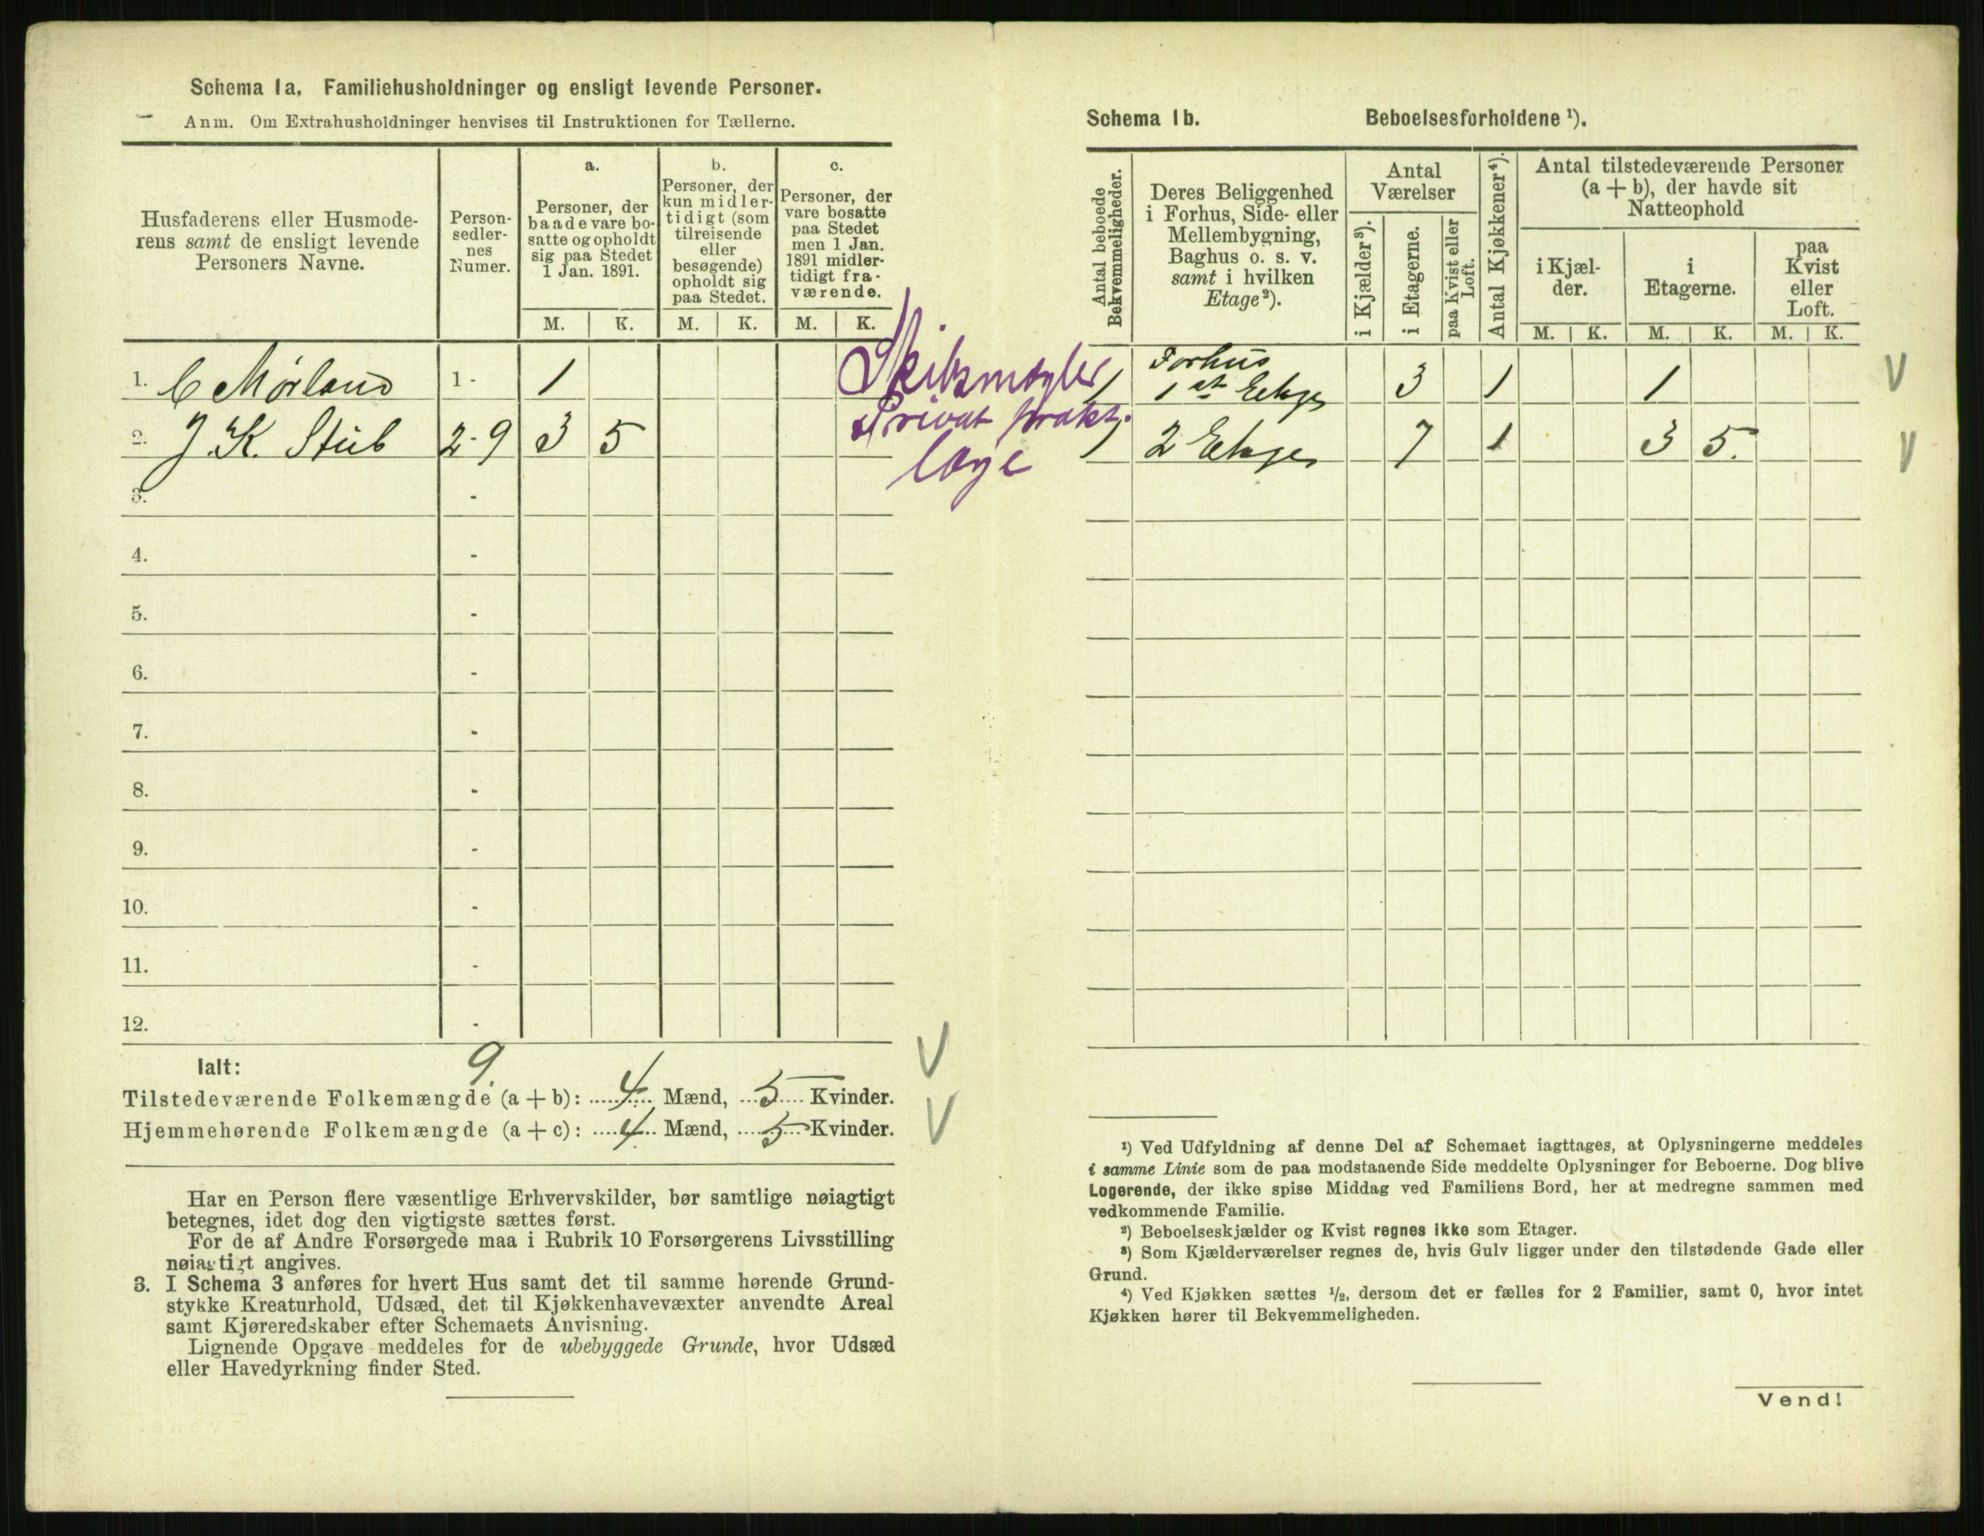 Schema 1a. Familiehusholdninger og ensligt levende Personer.
Anm. Om Extrahusholdninger henvises til Instruktionen for Tællerne.
Husfaderens eller Husmode-
rens samt de ensligt levende
Personers Navne.
Person-
sedler-
nes
Numer.
a.
Personer, der
baade vare bo-
satte og opholdt
sig paa Stedet
1 Jan. 1891.
b.
Personer, der
kun midler-
tidigt (som
tilreisende
eller
besøgende)
opholdt sig
paa Stedet.
c.
Personer, der
vare bosatte
paa Stedet
men 1 Jan.
1891 midler-
tidigt fra-
værende.
M. K. M. K. M. K.
1. C Mørland 1 - 1
2. J. K. Stub 2 - 9 3 5
3. -
4. -
5. -
6. -
7. -
8. -
9. -
10. -
11. -
12. -
Skibsmægler
Privat prakt.
læge
Ialt: 9.
Tilstedeværende Folkemængde (a + b): 4 Mænd, 5 Kvinder.
Hjemmehørende Folkemængde (a + c): 4 Mænd, 5 Kvinder.
Har en Person flere væsentlige Erhvervskilder, bør samtlige nøiagtigt
betegnes, idet dog den vigtigste sættes først.
For de af Andre Forsørgede maa i Rubrik 10 Forsørgerens Livsstilling
nøiagtigt angives.
3. I Schema 3 anføres for hvert Hus samt det til samme hørende Grund-
stykke Kreaturhold, Udsæd, det til Kjøkkenhavevæxter anvendte Areal
samt Kjøreredskaber efter Schemaets Anvisning.
Lignende Opgave meddeles for de ubebyggede Grunde, hvor Udsæd
eller Havedyrkning finder Sted.
Schema 1b. Beboelsesforholdene ¹).
Antal beboede
Bekvemmeligheder.
Deres Beliggenhed
i Forhus, Side- eller
Mellembygning,
Baghus o. s. v.
samt i hvilken
Etage²).
Antal
Værelser
i Kjælder³).
i Etagerne.
paa Kvist eller
Loft.
Antal Kjøkkener⁴).
Antal tilstedeværende Personer
(a + b), der havde sit
Natteophold
i Kjæl-
der.
i
Etagerne.
paa
Kvist
eller
Loft.
M. K. M. K. M. K.
1 Forhus
1 st Etage 3 1 1 V
1 2 Etage 7 1 3 5. V
V
V
¹) Ved Udfyldning af denne Del af Schemaet iagttages, at Oplysningerne meddeles
i samme Linie som de paa modstaaende Side meddelte Oplysninger for Beboerne. Dog blive
Logerende, der ikke spise Middag ved Familiens Bord, her at medregne sammen med
vedkommende Familie.
²) Beboelseskjælder og Kvist regnes ikke som Etager.
³) Som Kjælderværelser regnes de, hvis Gulv ligger under den tilstødende Gade eller
Grund.
⁴) Ved Kjøkken sættes ½, dersom det er fælles for 2 Familier, samt 0, hvor intet
Kjøkken hører til Bekvemmeligheden.
Vend!